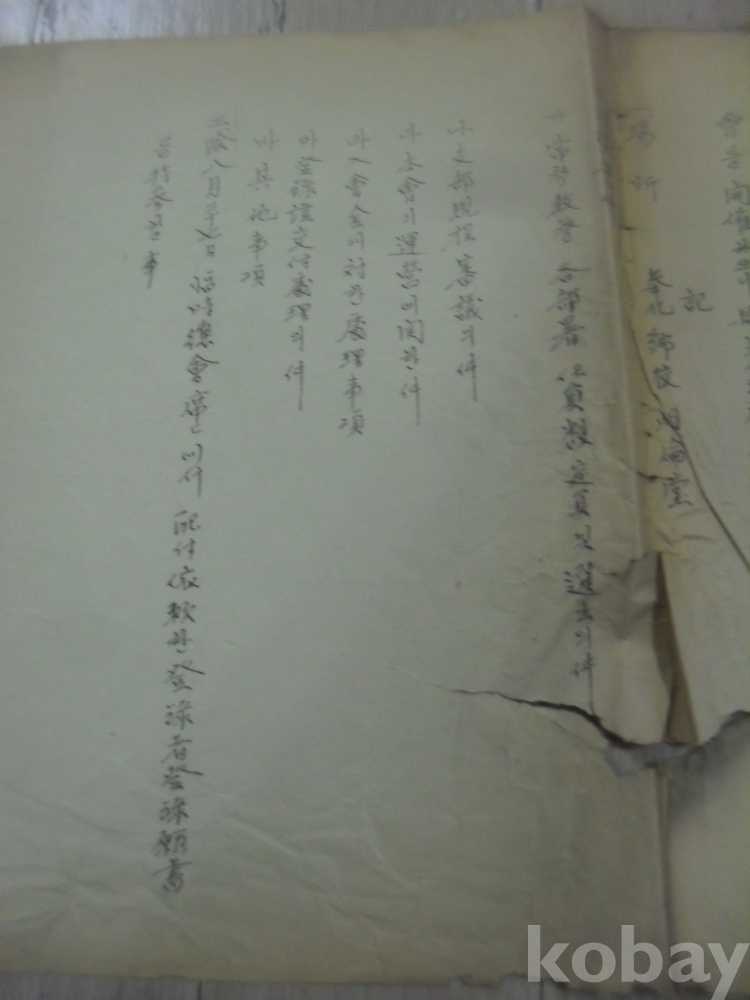 會를 開催
記
一 場所 奉化鄕校 明倫堂
各部署 任員數 定員 및 選出의 件
나 支部規程審議의 件
다 本會의 運營에 関한 件
라 入會金에 対한 處理事項
마 登錄證交付處理의 件
바 其他事項
八月 臨時總會席上에서 配付依賴한 登錄者登錄願書
事
kobay